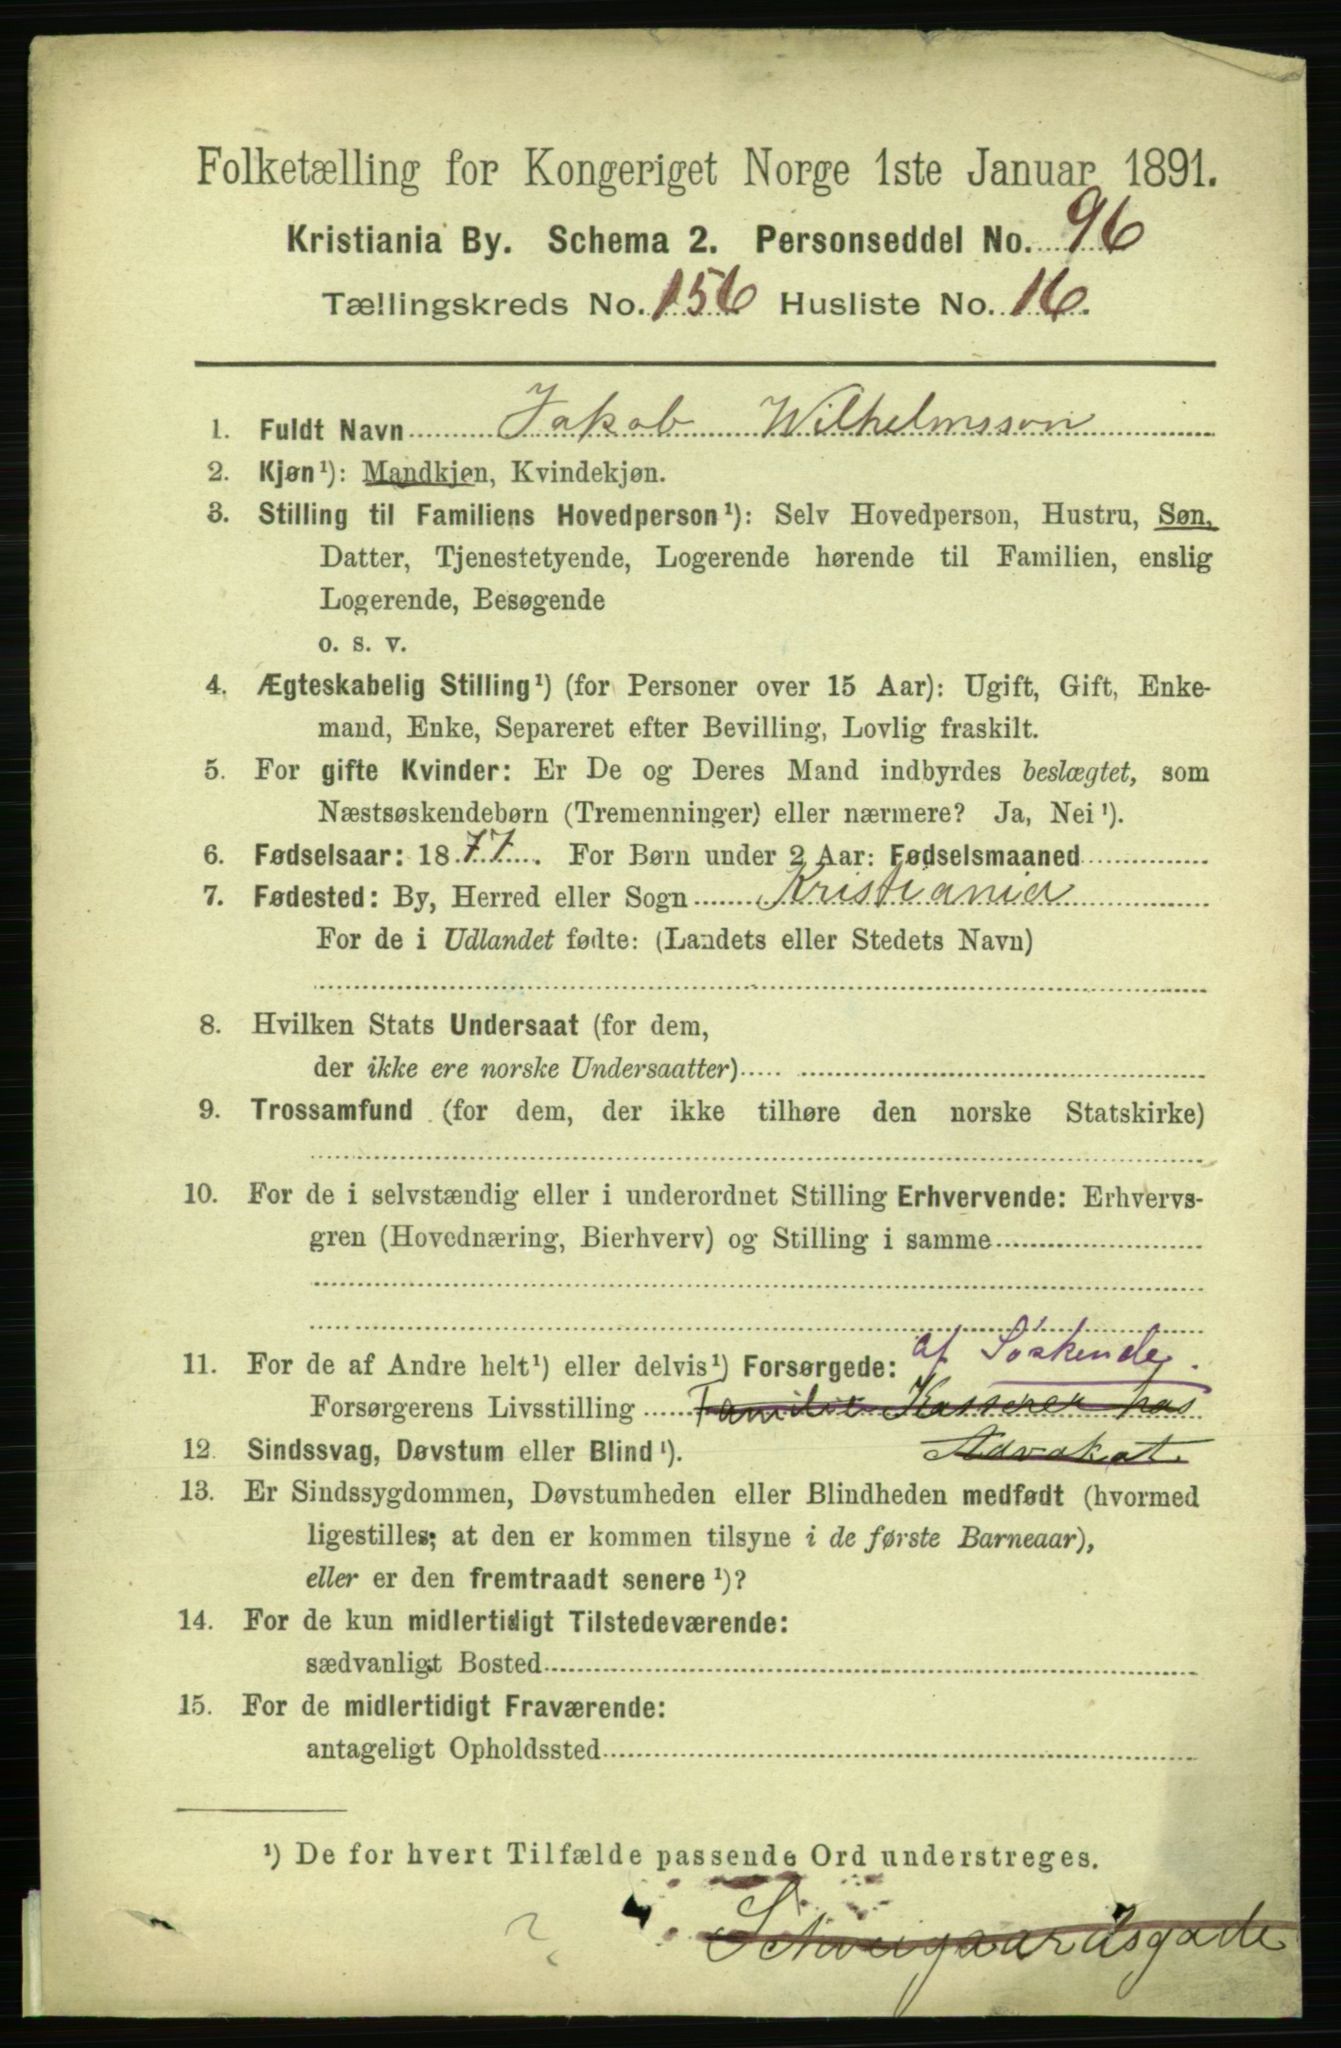 Folketælling for Kongeriget Norge 1ste Januar 1891.
Kristiania By. Schema 2. Personseddel No. 96
Tællingskreds No. 156 Husliste No. 16.
1. Fuldt Navn Jakob Wilhelmsson
2. Kjøn¹): Mandkjøn, Kvindekjøn.
3. Stilling til Familiens Hovedperson¹): Selv Hovedperson, Hustru, Søn,
Datter, Tjenestetyende, Logerende hørende til Familien, enslig
Logerende, Besøgende
o. s. v.
4. Ægteskabelig Stilling¹) (for Personer over 15 Aar): Ugift, Gift, Enke-
mand, Enke, Separeret efter Bevilling, Lovlig fraskilt.
5. For gifte Kvinder: Er De og Deres Mand indbyrdes beslægtet, som
Næstsøskendebørn (Tremenninger) eller nærmere? Ja, Nei¹).
6. Fødselsaar: 1877. For Børn under 2 Aar: Fødselsmaaned
7. Fødested: By, Herred eller Sogn Kristiania
For de i Udlandet fødte: (Landets eller Stedets Navn)
8. Hvilken Stats Undersaat (for dem,
der ikke ere norske Undersaatter)
9. Trossamfund (for dem, der ikke tilhøre den norske Statskirke)
10. For de i selvstændig eller i underordnet Stilling Erhvervende: Erhvervs-
gren (Hovednæring, Bierhverv) og Stilling i samme
11. For de af Andre helt¹) eller delvis¹) Forsørgede: af Söskende.
Forsørgerens Livsstilling Familie Kasserer hos
12. Sindssvag, Døvstum eller Blind¹). Advokat.
13. Er Sindssygdommen, Døvstumheden eller Blindheden medfødt (hvormed
ligestilles; at den er kommen tilsyne i de første Barneaar),
eller er den fremtraadt senere¹)?
14. For de kun midlertidigt Tilstedeværende:
sædvanligt Bosted
15. For de midlertidigt Fraværende:
antageligt Opholdssted
¹) De for hvert Tilfælde passende Ord understreges.
? Schweigaardsgade